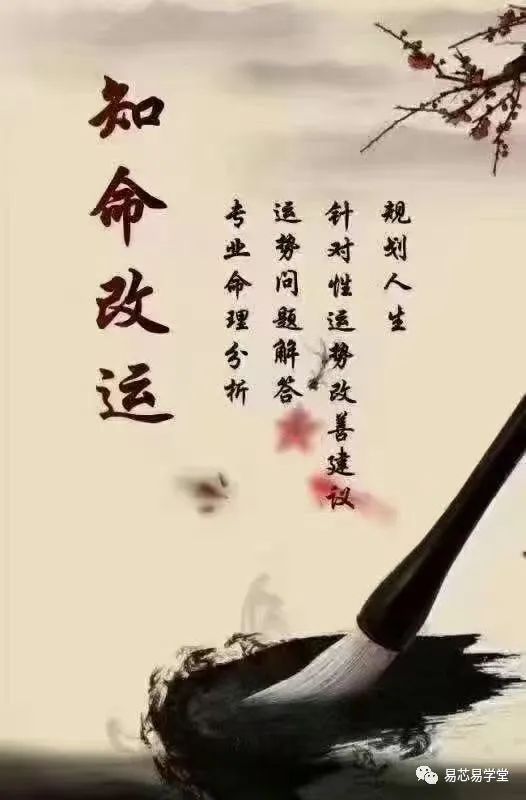 知命改运
规划人生
针对性运势改善建议
运势问题解答
专业命理分析
易芯易学堂